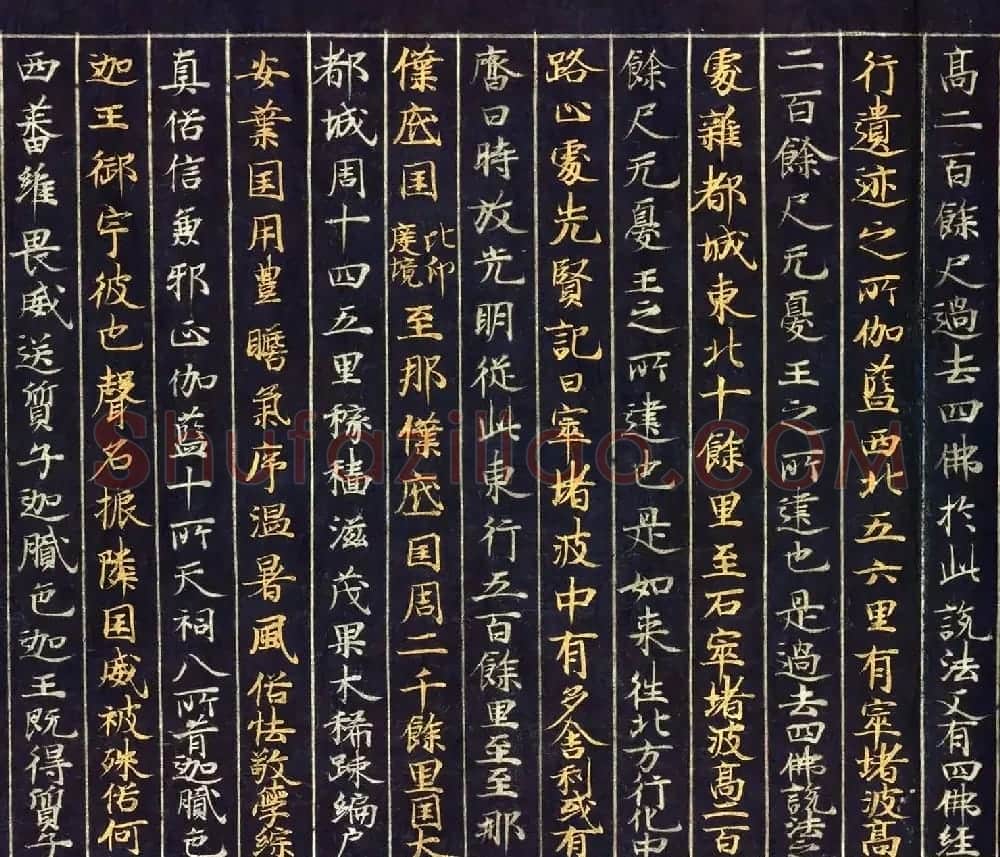 高二百餘尺過去四佛於此說法又有四佛經
行遺迹之所伽藍西北五六里有窣堵波高
二百餘尺无憂王之所建也是過去四佛說法
處雜都城東北十餘里至石窣堵波高二百
餘尺无憂王之所建也是如来往北方行化中
路止處先賢記曰窣堵波中有多舍利或有
齋日時放光明從此東行五百餘里至至那
僕底国北印度境至那僕底国周二千餘里国大
都城周十四五里稼穡滋茂果木稀踈編戶
安業国用豊贍氣序溫暑風俗怯敬學綜
真俗信兼邪正伽藍十所天祠八所昔迦膩色
迦王御宇彼也聲名振隣国威被殊俗何
西蕃維畏威送質子迦膩色迦王既得質子
Shufaziliao.COM